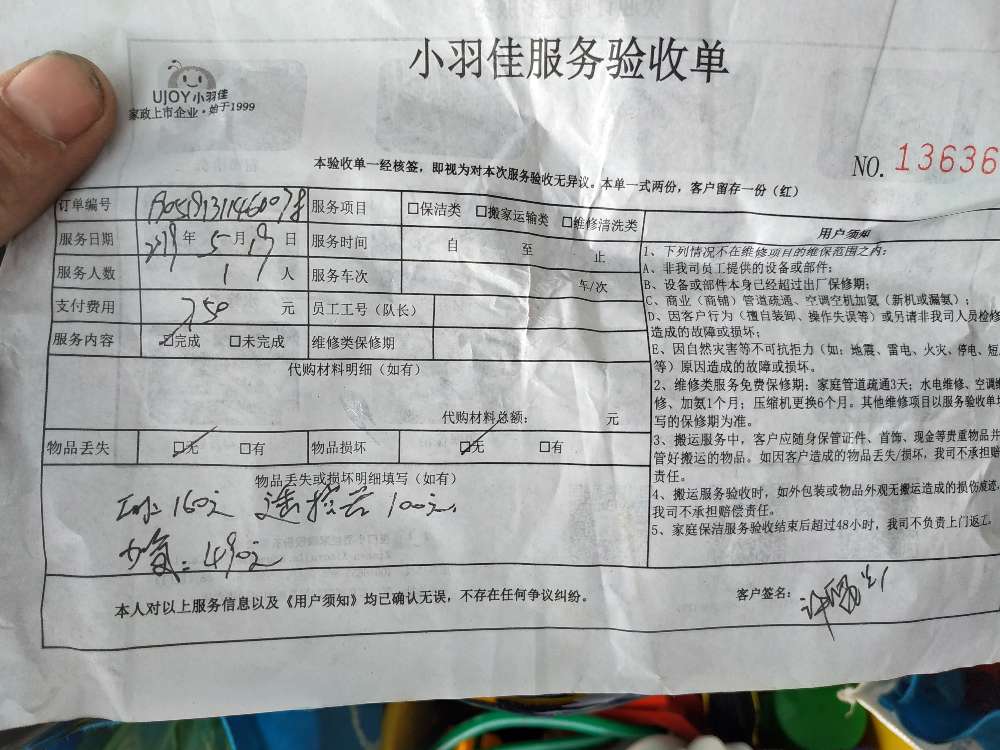 小羽佳服务验收单
UJOY小羽佳
家政上市企业·始于1999
NO. 13636
本验收单一经核签，即视为对本次服务验收无异议。本单一式两份，客户留存一份（红）
订单编号 服务项目 □保洁类 □搬家运输类 □维修清洗类
服务日期 年 5 月 19 日 服务时间 自 至 止
服务人数 1 人 服务车次 车/次
支付费用 750 元 员工工号（队长）
服务内容 □完成 □未完成 维修类保修期
代购材料明细（如有）
代购材料总额： 元
物品丢失 □无 □有 物品损坏 □无 □有
物品丢失或损坏明细填写（如有）
160元 遥控器 100元
加氨：490元
本人对以上服务信息以及《用户须知》均已确认无误，不存在任何争议纠纷。
客户签名：
用户须知
1、下列情况不在维修项目的维保范围之内：
A、非我司员工提供的设备或部件；
B、设备或部件本身已经超过出厂保修期；
C、商业（商铺）管道疏通、空调空机加氨（新机或漏氨）；
D、因客户行为（擅自装卸、操作失误等）或另请非我司人员检修
造成的故障或损坏；
E、因自然灾害等不可抗拒力（如：地震、雷电、火灾、停电、短
等）原因造成的故障或损坏。
2、维修类服务免费保修期：家庭管道疏通3天；水电维修、空调维
修、加氨1个月；压缩机更换6个月。其他维修项目以服务验收单填
写的保修期为准。
3、搬运服务中，客户应随身保管证件、首饰、现金等贵重物品并
管好搬运的物品。如因客户造成的物品丢失/损坏，我司不承担赔
责任。
4、搬运服务验收时，如外包装或物品外观无搬运造成的损伤痕迹，
我司不承担赔偿责任。
5、家庭保洁服务验收结束后超过48小时，我司不负责上门返工。